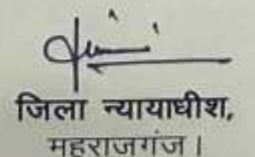 जिला न्यायाधीश,
महराजगंज।